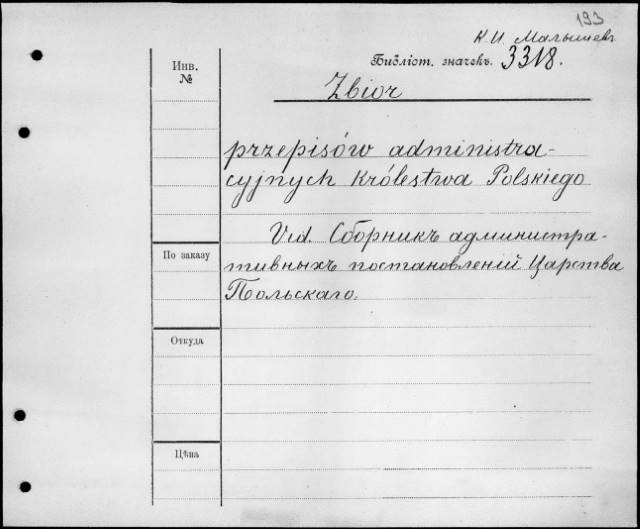 193
К. И. Малышев
Инв.
№
Библіот. значекъ. 3318.
Zbior
przepisów administra-
cyjnych Królestwa Polskiego
Vid. Сборникъ администра-
тивныхъ постановленій Царства
Польскаго.
По заказу
Откуда
Цѣна